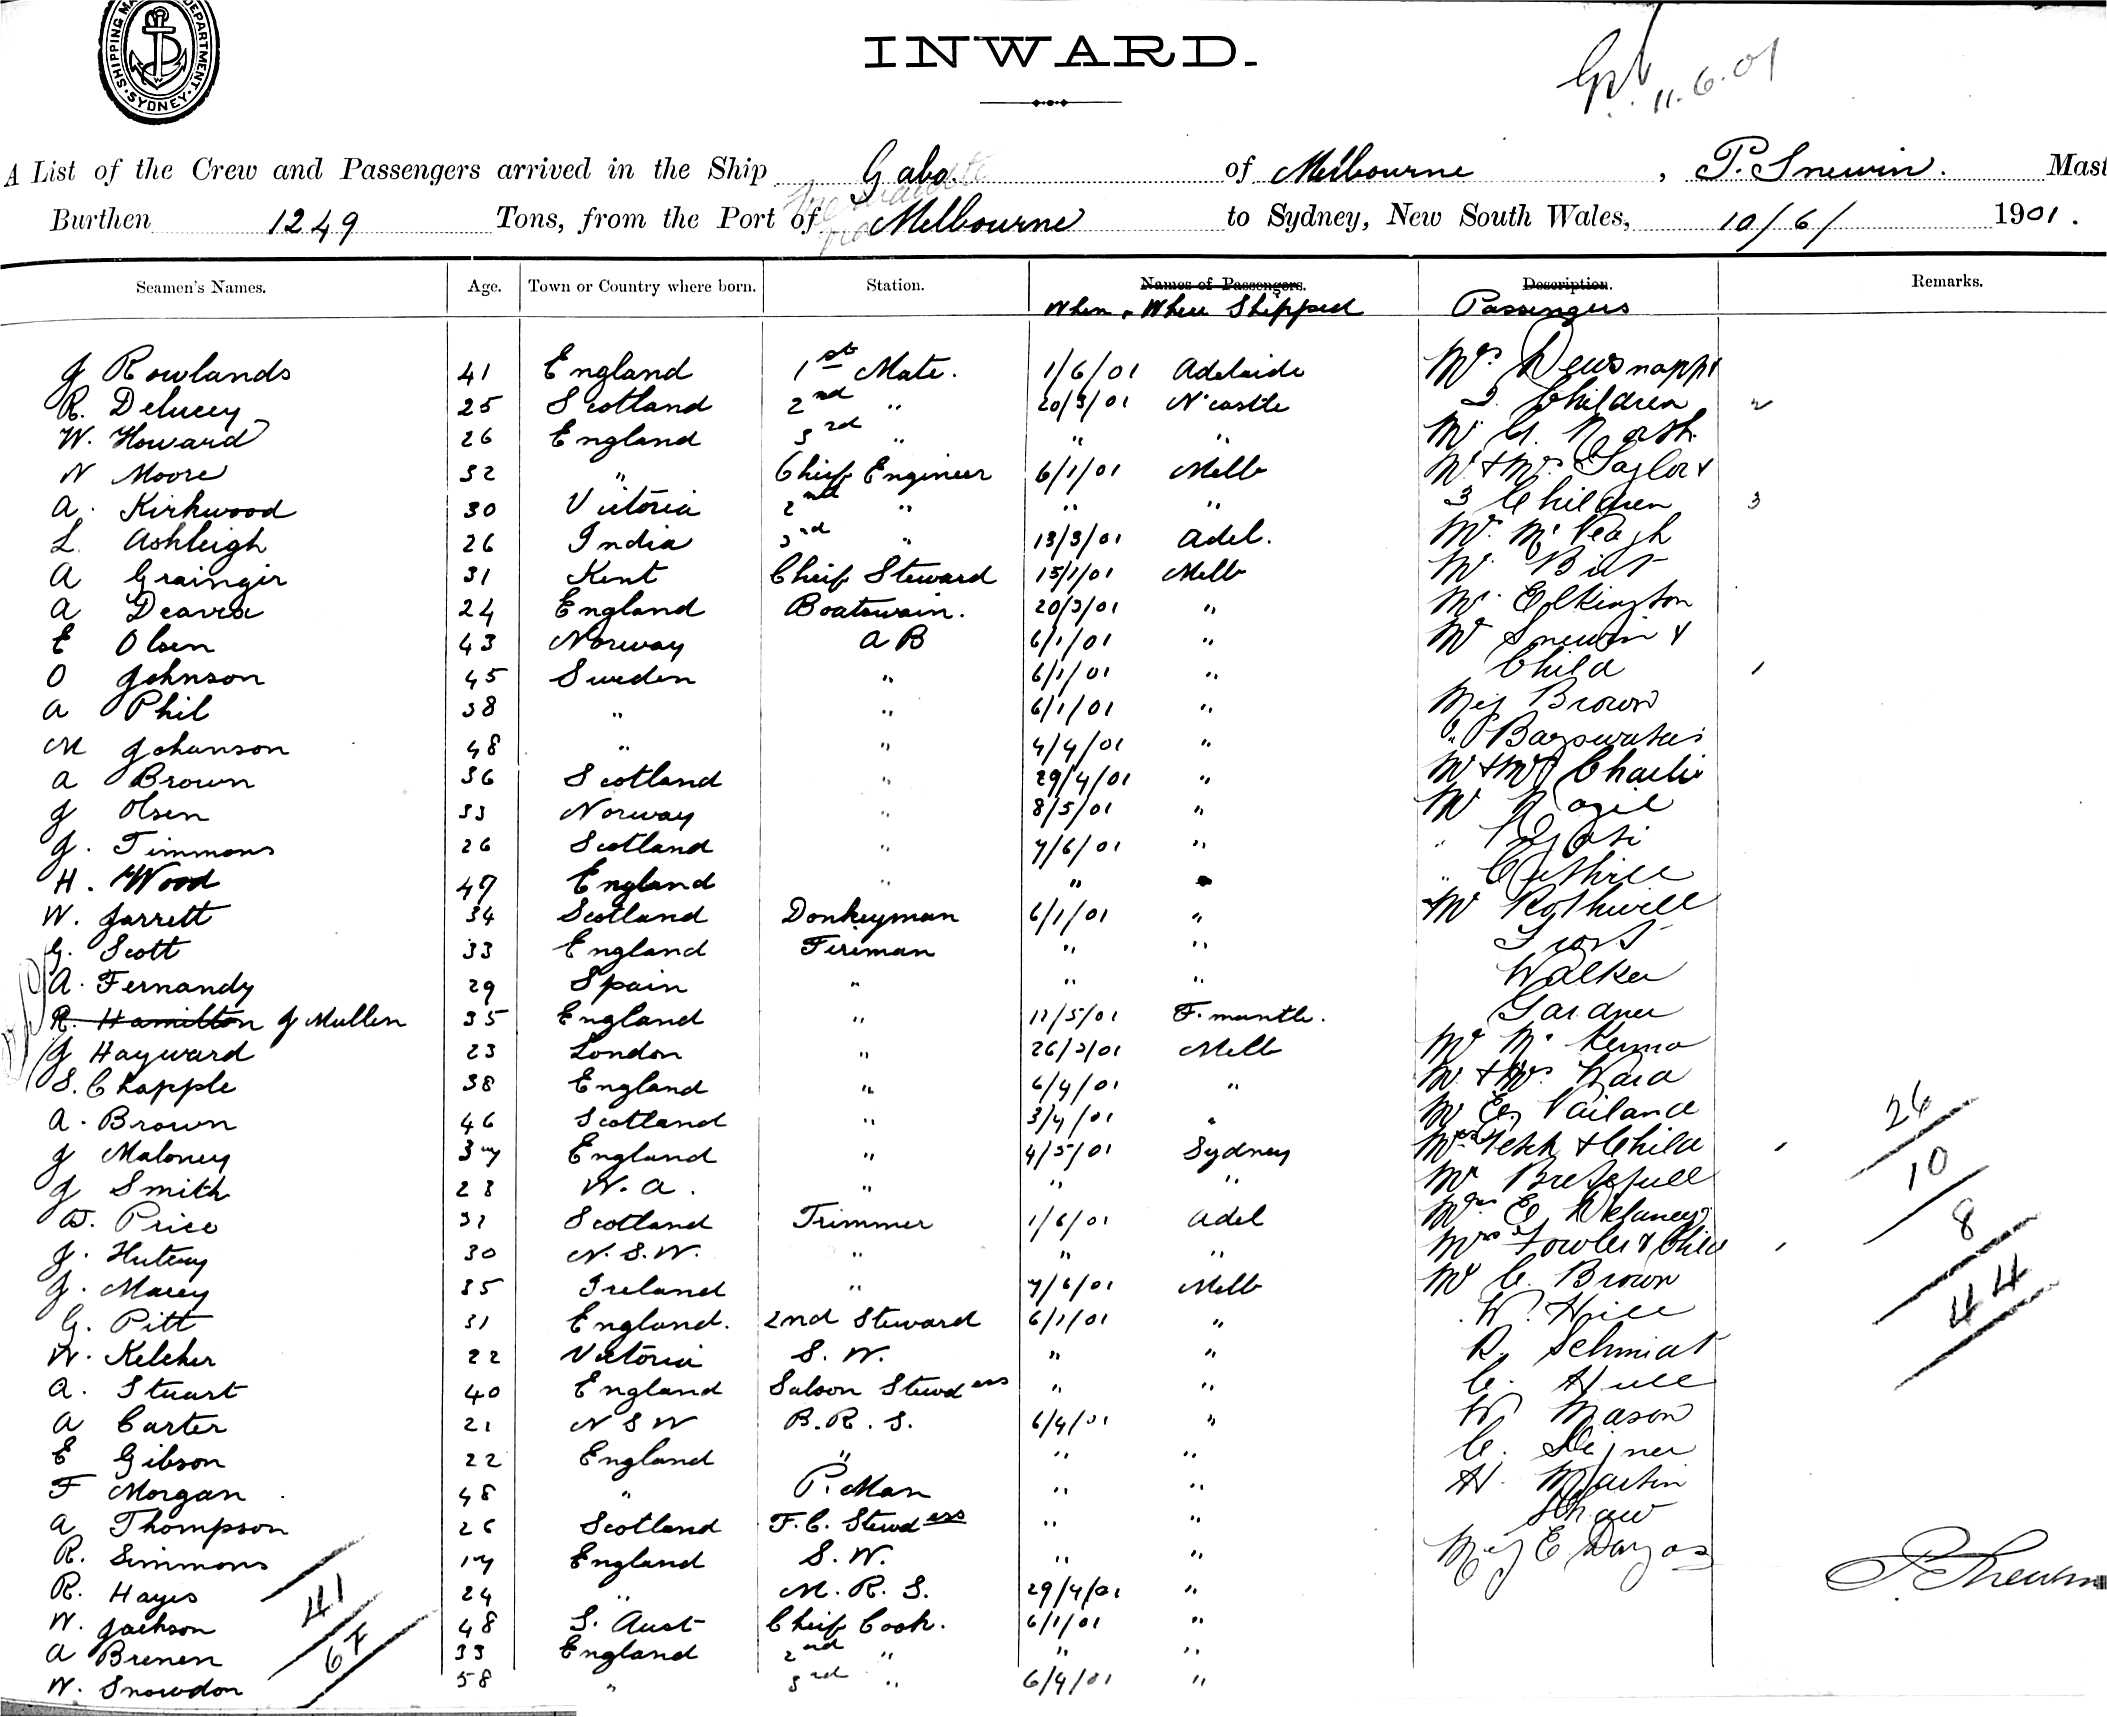 SHIPPING MASTER'S DEPARTMENT. SYDNEY.
INWARD.
11.6.01
A List of the Crew and Passengers arrived in the Ship Gabo of Melbourne, P. Snewin. Mast
Burthen 1249 Tons, from the Port of Melbourne to Sydney, New South Wales, 10/6/ 1901.
Seamen's Names. Age. Town or Country where born. Station. Names of Passengers. Description. Remarks.
When & Where Shipped Passengers
J Rowlands 41 England 1st Mate. 1/6/01 Adelaide Mrs Dewsnapp &
R. Delucey 25 Scotland 2nd " 20/3/01 N'castle 2 Children 2
W. Howard 26 England 3rd " " " Mr G. Nash
N Moore 32 " Chief Engineer 6/1/01 Melb Mr & Mrs Taylor &
A. Kirkwood 30 Victoria 2nd " " " 3 Children 3
L. Ashleigh 26 India 3rd " 13/3/01 Adel. Mr McVeagh
A Grainger 31 Kent Cheif Steward 15/1/01 Melb Mr
A Deavse 24 England Boatswain. 20/3/01 " Mr Elkington
E Olsen 43 Norway A B 6/1/01 " Mr Snewin &
O Johnson 45 Sweden " 6/1/01 " Child 1
A Phil 38 " " 6/1/01 " Miss Brown
M Johanson 48 " " 4/4/01 " "
A Brown 36 Scotland " 29/4/01 " Mr & Mrs Charlie
J Olsen 33 Norway " 8/5/01 " Mr
J. Timmons 26 Scotland " 7/6/01 " "
H. Wood 47 England " " " " Cuthill
W. Jarrett 34 Scotland Donkeyman 6/1/01 " Mr Rothwell
G. Scott 33 England Fireman " " Frost
A. Fernandy 29 Spain " " " Walker
R. Hamilton J Mullen 35 England " 11/5/01 F.mantle. Gardner
J Hayward 23 London " 26/3/01 Melb Mr Mc Kenna
S. Chapple 38 England " 6/4/01 " Mr & Mrs Ward
A. Brown 46 Scotland " 3/4/01 " Mr Vailance
J Maloney 37 England " 4/5/01 Sydney Mrs Tesch & Child 1
J Smith 28 W.A. " " " Mr
W. Price 31 Scotland Trimmer 1/6/01 Adel Mrs E Delaney
J. Huteny 30 N.S.W. " " " Mrs Fowler & Child 1
J. Macey 35 Ireland " 7/6/01 Melb Mr C. Brown
G. Pitt 31 England. 2nd Steward 6/1/01 " W. Hill
W. Kelcher 22 Victoria S.W. " " R. Schmidt
A. Stuart 40 England Saloon Stewdess " " C. Hull
A Carter 21 N S W B.R.S. 6/4/01 " W Mason
E Gibson 22 England " " " C.
F Morgan 48 " P. Man " " H. Martin
A Thompson 26 Scotland F.C. Stewdess " " Shaw
R. Simmons 17 England S.W. " " Miss E
R. Hayes 24 " M.R.S. 29/4/01 "
W. Jackson 48 S. Aust Cheif Cook. 6/1/01 "
A Brenen 33 England 2nd " " "
W. Snowdon 58 " 3rd " 6/4/01 "
26
10
8
44
41
67
P. Snewin